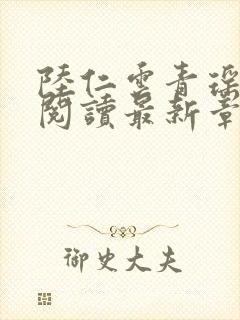 陸仁雲青瑤
閱讀最新章
御史大夫